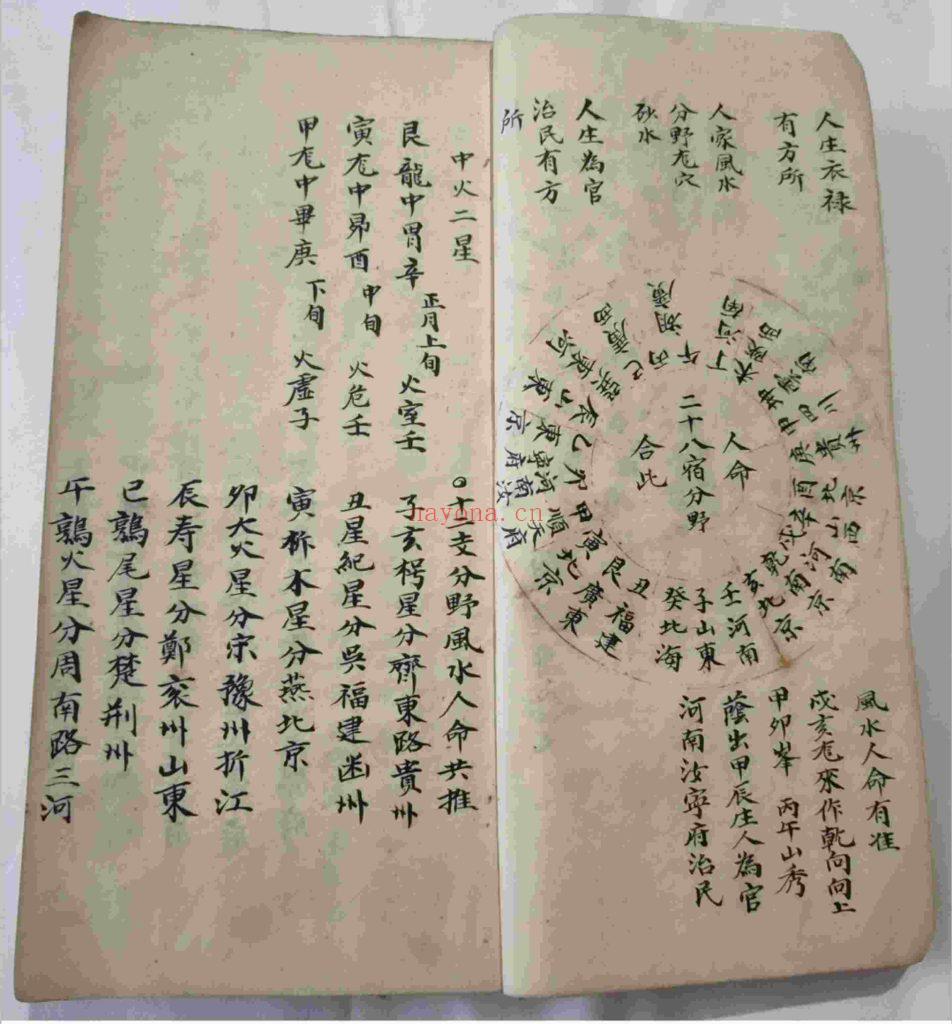 人生衣禄
有方所
人家風水
分野龙穴
砂水
人生為官
治民有方
所
二十八宿分野
人命
合此
壬河南
子山東
癸北海
丑福建
艮廣東
寅北京
甲順
卯
乙
辰山東
巳廣西
丙
午湖廣
丁河南
未陝西
坤雲南
申四川
庚貴州
酉
辛
戌
乾河南
亥北京
風水人命有准
戌亥龙來作乾向向上
甲卯峯 丙午山秀
蔭出甲辰庄人為官
河南汝寧府治民
中火二星
艮龍中胃辛 正月上旬 火室壬
寅龙中昴酉 中旬 火危壬
甲龙中畢庚 下旬 火虛子
十二支分野風水人命共推
子亥枵星分齊東路貴州
丑星紀星分吳福建
寅析木星分燕北京
卯大火星分宋豫州折江
辰寿星分鄭兖州山東
巳鶉尾星分楚荆州
午鶉火星分周南路三河
hayona.cn